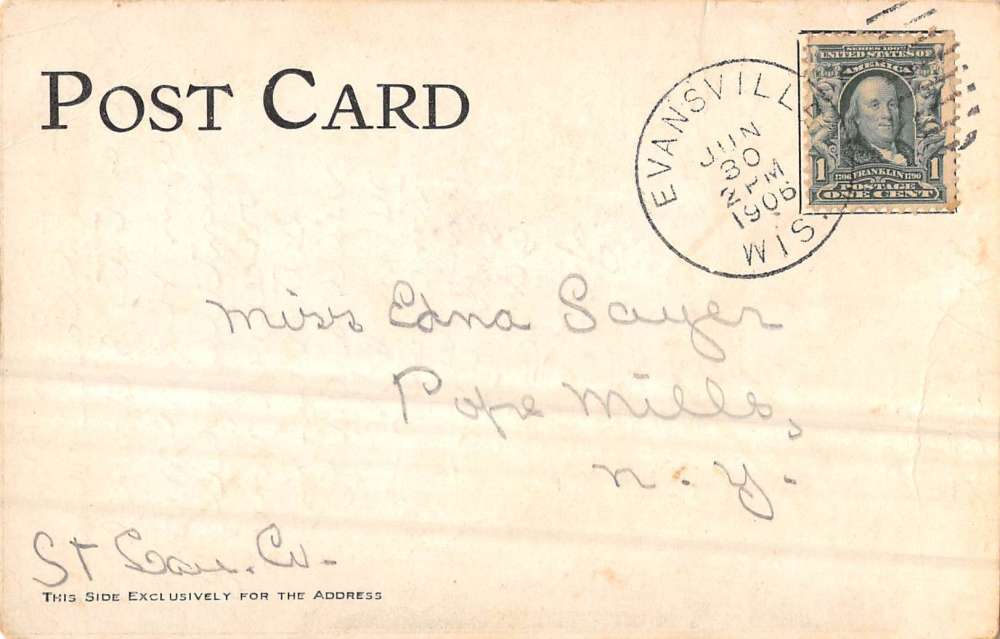 POST CARD
EVANSVILLE
WIS.
JUN
30
2 PM
1906
SERIES 1902
UNITED STATES OF
AMERICA
1 1
1706 FRANKLIN 1790
POSTAGE
ONE CENT
Miss Edna Sayer
Pope Mills,
N. Y.
St Law. Co.
THIS SIDE EXCLUSIVELY FOR THE ADDRESS